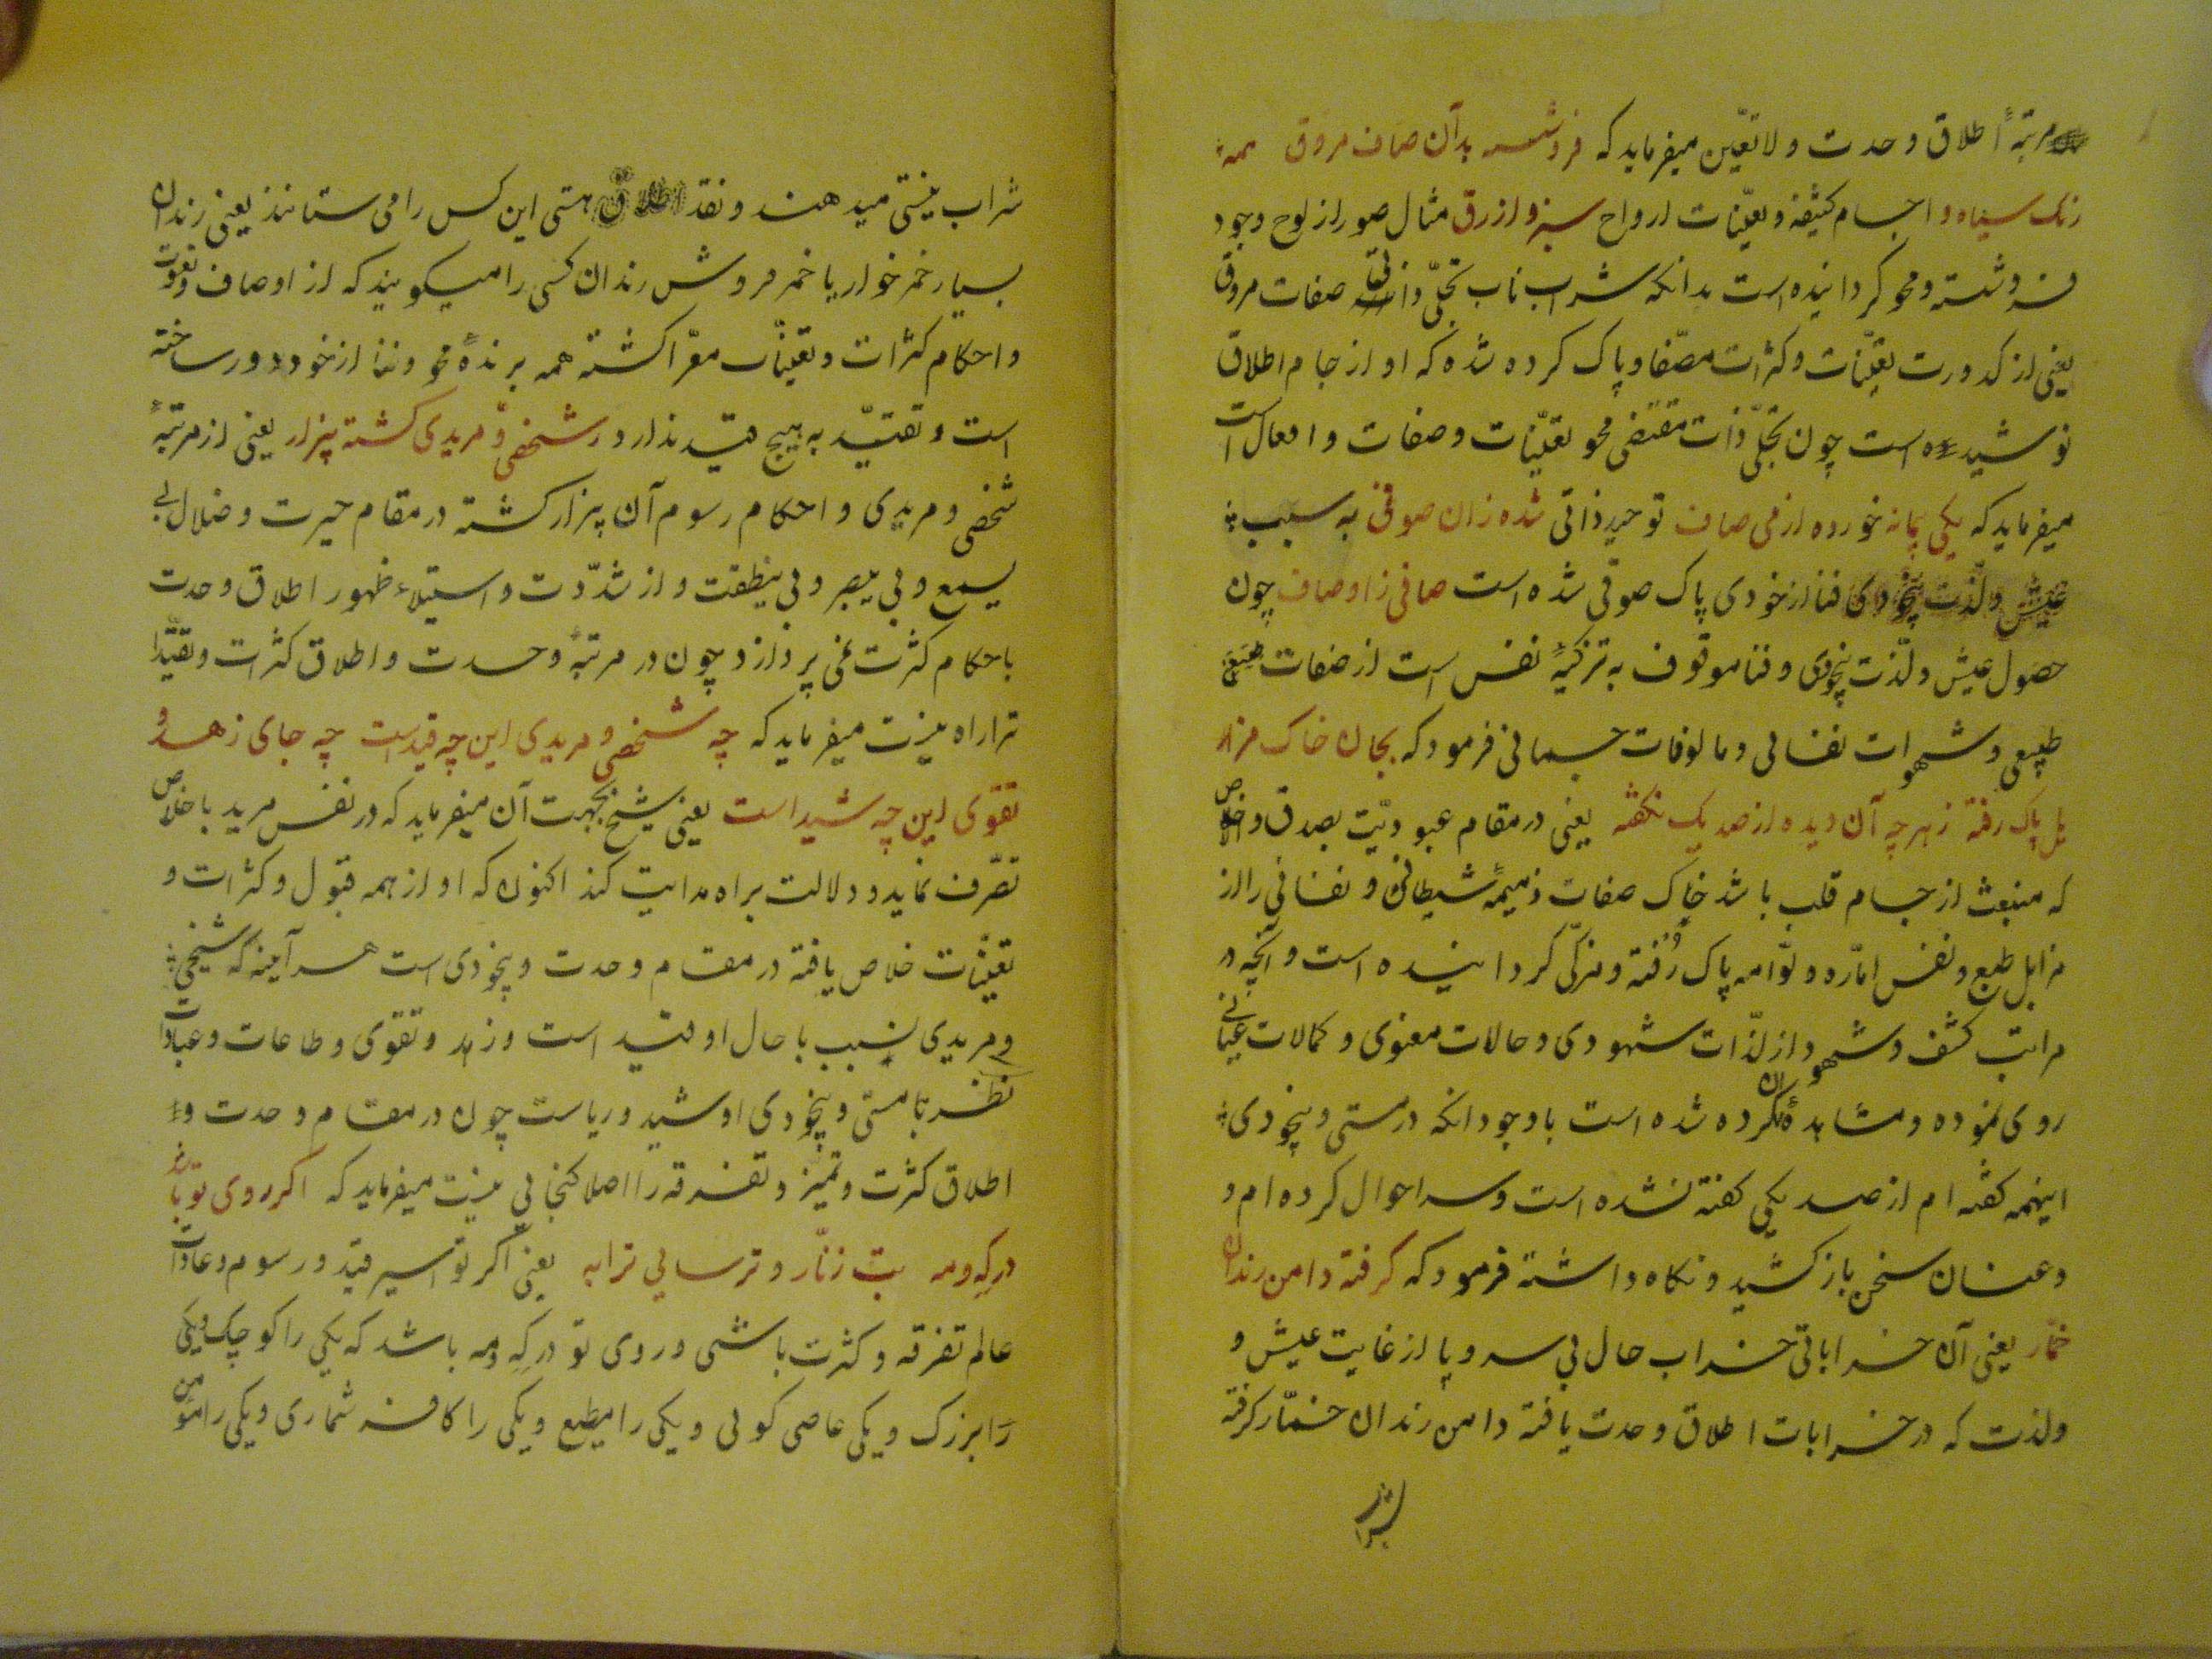 مرتبهٔ اطلاق وحدت و لا تعیّن میفرماید که فروشسته بدآن صاف مروق همه
رنک سیاه و اجسام کثیفه و تعیّنات ارواح سبز و ازرق مثال صور از لوح وجود
فروشسته و محو کردانیده است بدانکه شراب ناب تجلّی ذاتی صفات مروق
یعنی از کدورت تعیّنات و کثرات مصفّا و پاک کرده شده که او از جام اطلاق
نوشیده است چون تجلّی ذات مقتضی محو تعیّنات و صفات و افعال است
میفرماید که یکی پیمانه خورده از می صاف توحید ذاتی شده زان صوفی به سبب
عیش و لذّت بیخودی فنا از خودی پاک صوفی شده است صافی ز اوصاف چون
حصول عیش و لذّت بیخودی و فنا موقوف به تزکیهٔ نفس است از صفات
طبیعی و شهوات نفسانی و مالوفات جسمانی فرمود که بجان خاک مزابل
پاک رفته زهرچه آن دیده از صد یک نکفته یعنی در مقام عبودیّت بصدق و اخلاص
که منبعث از جام قلب باشد خاک صفات ذمیمهٔ شیطانی و نفسانی را از
مزابل طبع و نفس امّاره و لوّامه پاک رُفته و مزکّی کردانیده است و آنچه در
مراتب کشف و شهود از لذّات شهودی و حالات معنوی و کمالات عیانی
روی نموده و مشاهدهٔ آن کرده شده است باوجود انکه در مستی و بیخودی
اینهمه کفته ام از صد یکی کفته نشده است و سر احوال کرده ام و
و عنان سخن باز کشید و نکاه داشته فرمود که کرفته دامن رندان
خمّار یعنی آن خراباتی خراب حال بی سر و پا از غایت عیش و
ولذت که در خرابات اطلاق وحدت یافته دامن رندان خمّار کرفته
شراب
شراب نیستی میدهند و نقد هستی این کس را می ستانند یعنی رندان
بسیار خمرخوار یا خمر فروش رندان کسی را میکویند که از اوصاف و نعوت
و احکام کثرات و تعیّنات معرّا کشته همه برندهٔ محو و فنا از خود دور ساخته
است و تقیّد به هیچ قید ندارد ز شیخی و مریدی کشته بیزار یعنی از مرتبهٔ
شیخی و مریدی و احکام رسوم آن بیزار کشته در مقام حیرت و ضلال بی
یسمع و بی یبصر و بی ینطقت و از شدّت و استیلاء ظهور اطلاق وحدت
باحکام کثرت نمی پردازد و چون در مرتبهٔ وحدت و اطلاق کثرات و تقیّد
را راه نیست میفرماید که چه شیخی و مریدی این چه قید است چه جای زهد و
تقوی این چه شید است یعنی شیخ بجهت آن میفرماید که در نفس مرید باخلاص
تصرّف نماید و دلالت براه هدایت کند اکنون که او از همه قبول و کثرات و
تعیّنات خلاص یافته در مقام وحدت و بیخودی است هر آینه که شیخی
و مریدی نسبت با حال او قید است و زهد و تقوی و طاعات و عبادات
نظر با مستی و بیخودی او شید و ریاست چون در مقام وحدت و
اطلاق کثرت و تمیّز و تفرقه را اصلا کنجایی نیست میفرماید که اکر روی تو باشد
در که و مه بت زنّار و ترسایی ترا به یعنی اکر تو اسیر قید و رسوم و عادات
عالم تفرقه و کثرت باشی و روی تو در که و مه باشد که یکی را کوچک و یکی
را بزرک و یکی عاصی کویی و یکی را مطیع و یکی را کافر شماری و یکی را مؤمن